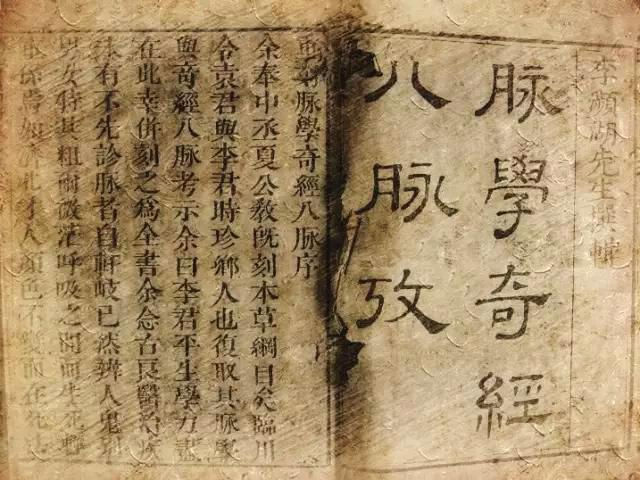 李瀕湖先生輯
脉學奇經
八脉攷
重刻脉學奇經八脉序
余奉中丞夏公敎既刻本草綱目矣臨川
令袁君與李君時珍鄉人也復取其脉學
與奇經八脉考示余曰李君平生學力盡
在此幸併刻之爲全書余念古良醫治疾
未有不先診脉者自軒岐已然辨人鬼別
男女特其粗爾微茫呼吸之間而生死
係焉如濟北才人顏色不變而在死法